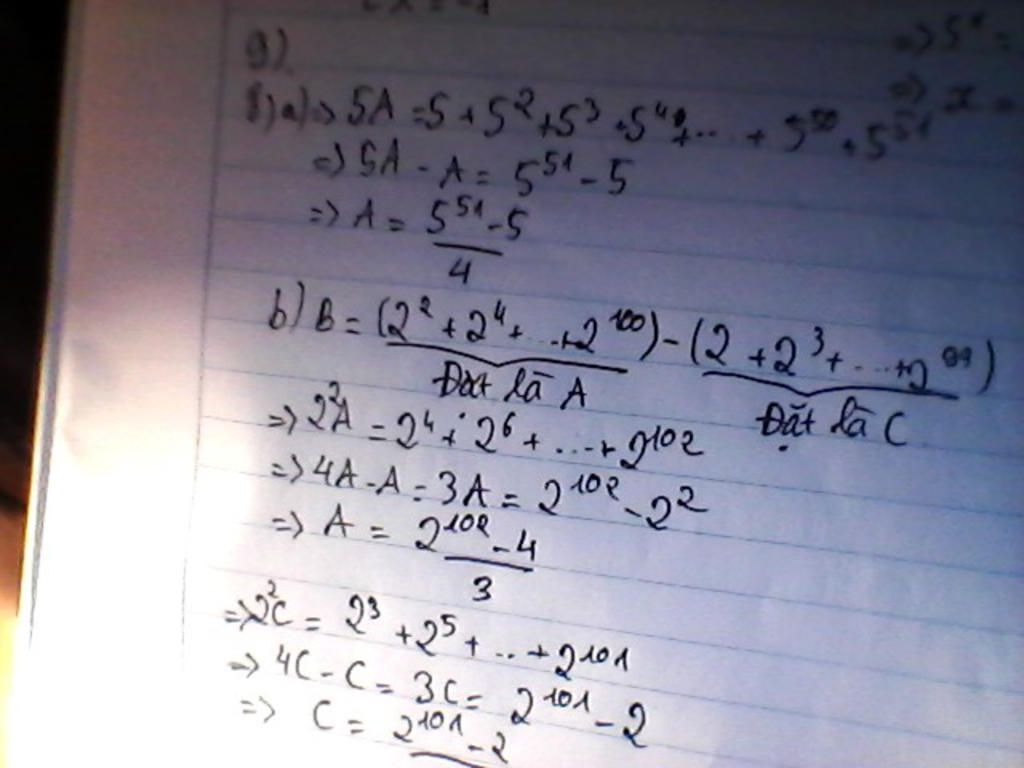 9)
8) a) => 5A = 5 + 5² + 5³ + 5⁴ + ... + 5⁵⁰ + 5⁵¹
=> 5A - A = 5⁵¹ - 5
=> A = (5⁵¹ - 5)/4
b) B = (2² + 2⁴ + ... + 2¹⁰⁰) - (2 + 2³ + ... + 2⁹⁹)
Đặt là A Đặt là C
=> 2²A = 2⁴ + 2⁶ + ... + 2¹⁰²
=> 4A - A = 3A = 2¹⁰² - 2²
=> A = (2¹⁰² - 4)/3
=> 2²C = 2³ + 2⁵ + ... + 2¹⁰¹
=> 4C - C = 3C = 2¹⁰¹ - 2
=> C = 2¹⁰¹ - 2